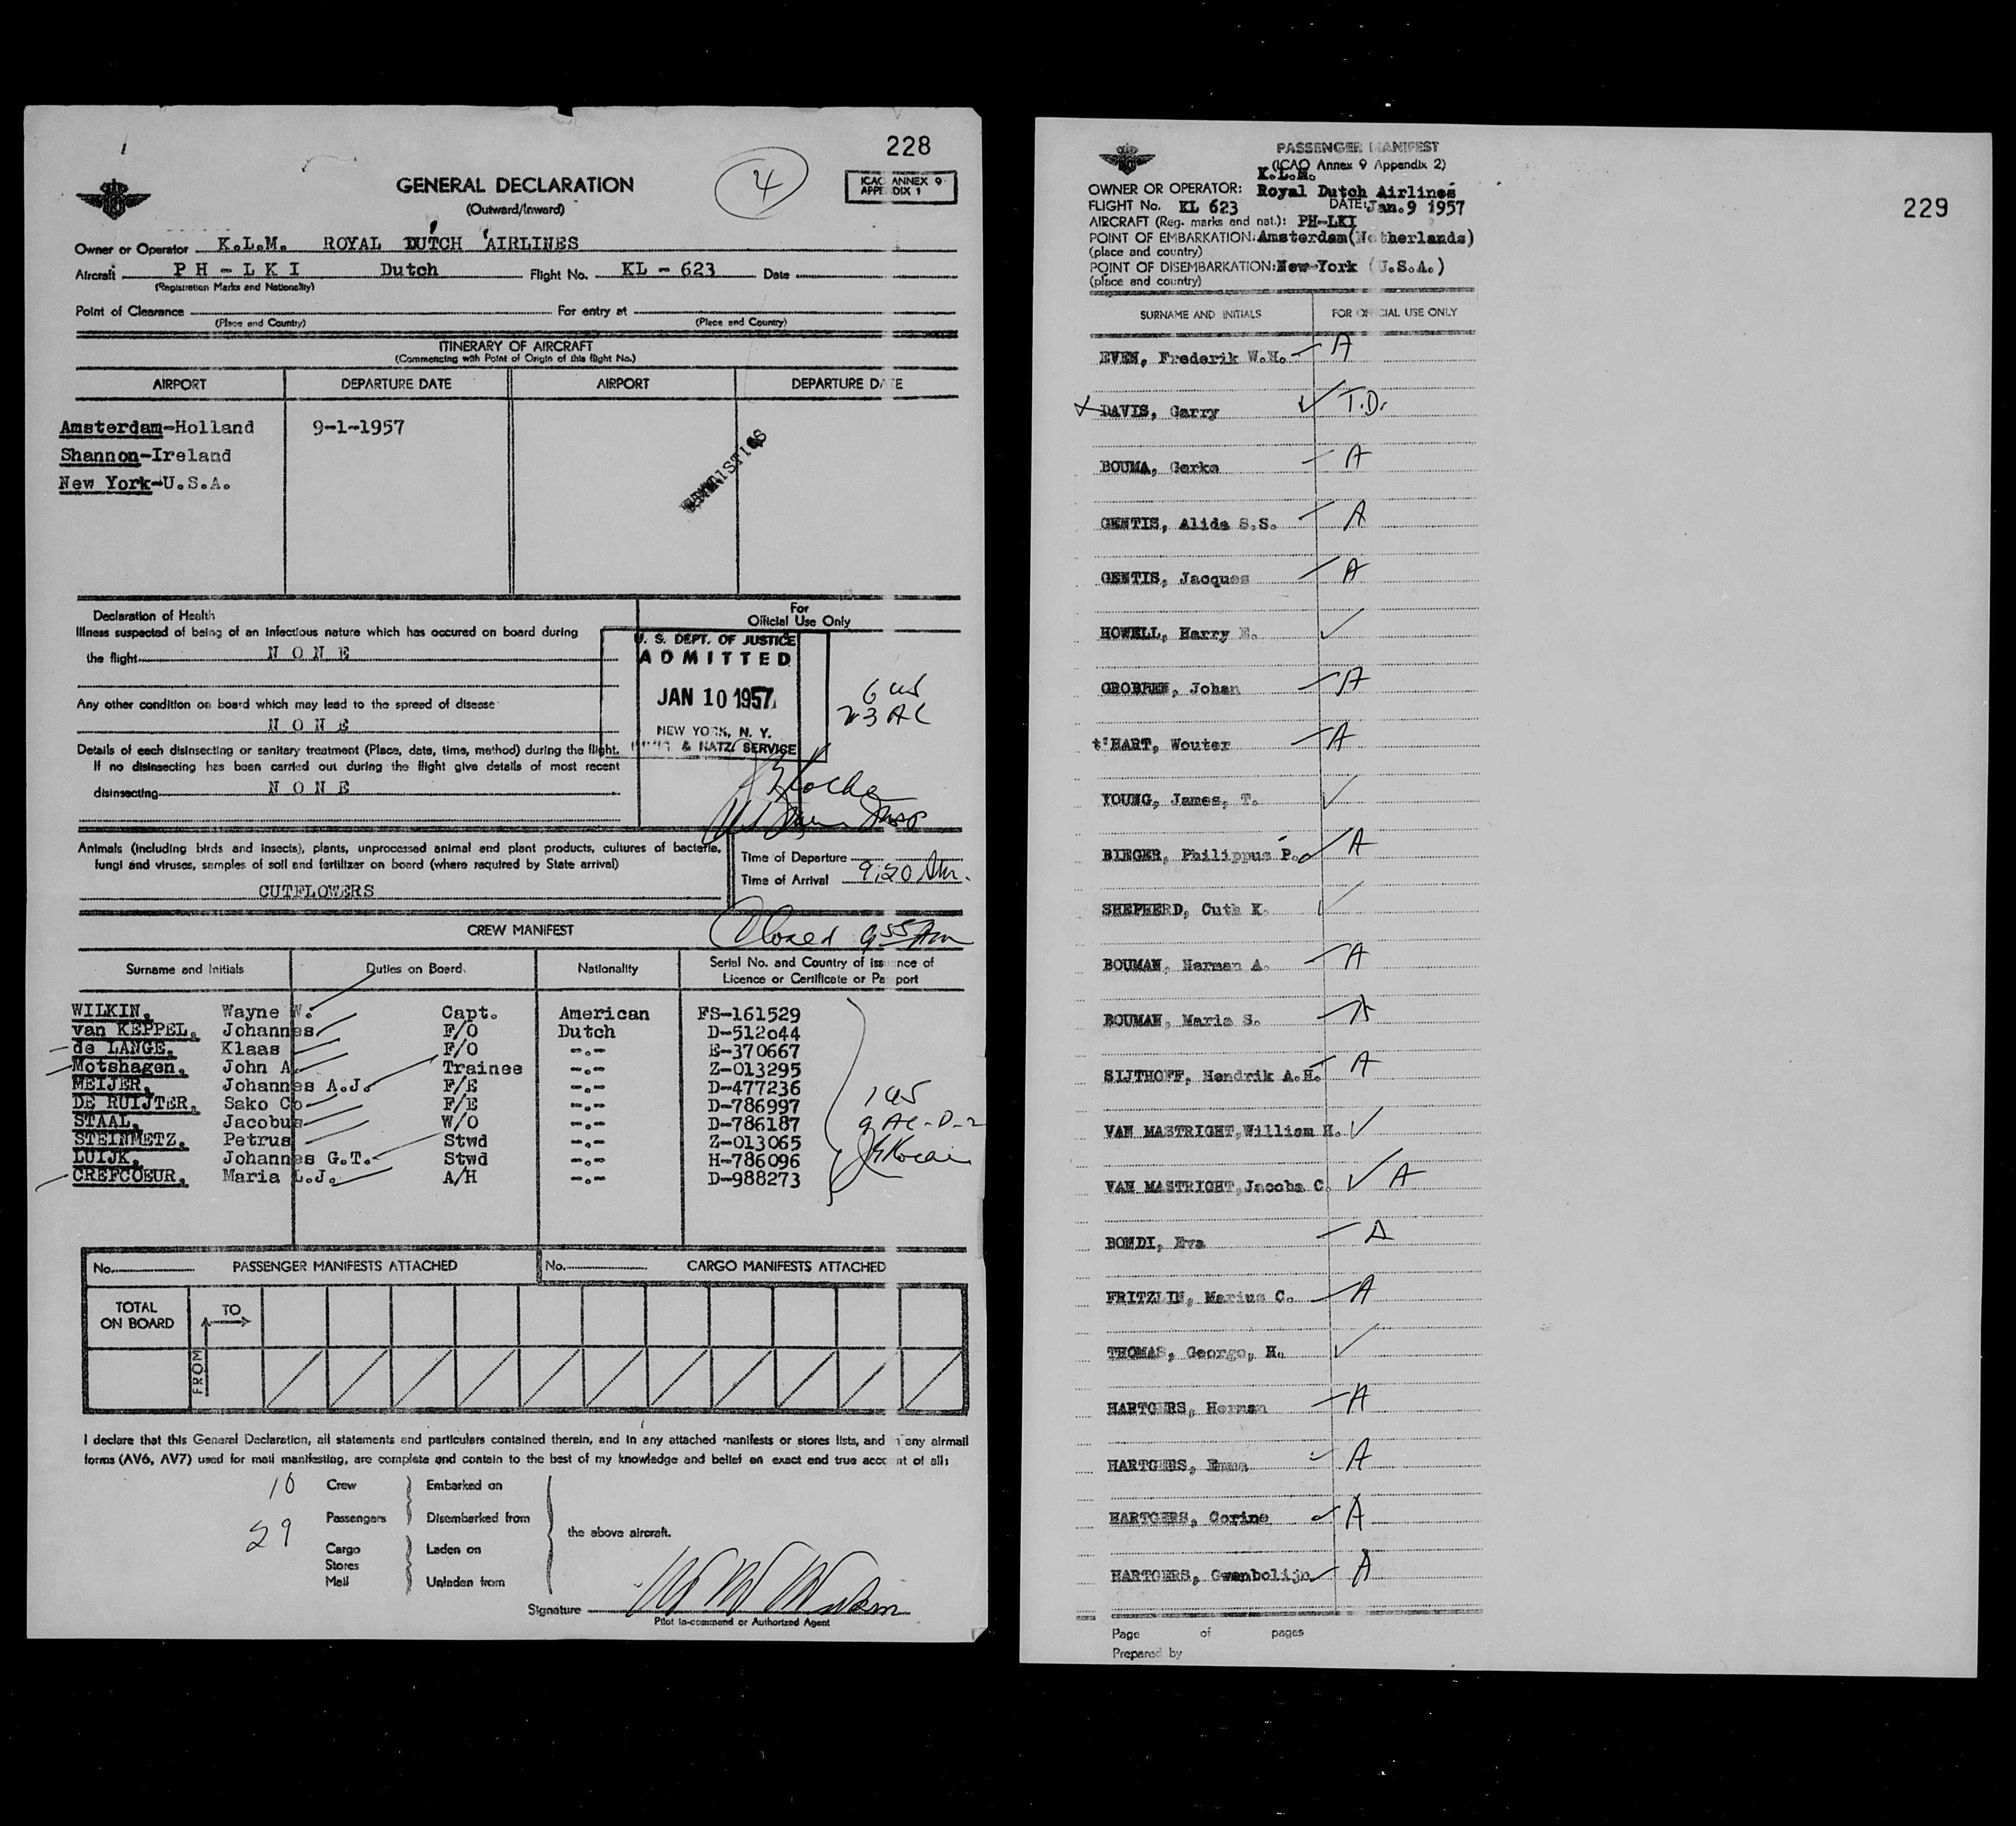 228
GENERAL DECLARATION
(Outward/Inward)
4
ICAO ANNEX 9
APPENDIX 1
Owner or Operator K.L.M. ROYAL DUTCH AIRLINES
Aircraft PH-LKI Dutch Flight No. KL - 623 Date
(Registration Marks and Nationality)
Point of Clearance For entry at
(Place and Country) (Place and Country)
ITINERARY OF AIRCRAFT
(Commencing with Point of Origin of this flight No.)
AIRPORT DEPARTURE DATE AIRPORT DEPARTURE DATE
Amsterdam-Holland 9-1-1957
Shannon-Ireland
New York-U.S.A.
Declaration of Health
Illness suspected of being of an infectious nature which has occured on board during
the flight NONE
For
Official Use Only
U. S. DEPT. OF JUSTICE
ADMITTED
JAN 10 1957
NEW YORK, N. Y.
& NATZ. SERVICE
Any other condition on board which may lead to the spread of disease
NONE
Details of each disinsecting or sanitary treatment (Place, date, time, method) during the flight.
If no disinsecting has been carried out during the flight give details of most recent
disinsecting NONE
Animals (including birds and insects), plants, unprocessed animal and plant products, cultures of bacteria,
fungi and viruses, samples of soil and fertilizer on board (where required by State arrival)
CUTFLOWERS
Time of Departure
Time of Arrival 9:20 Am.
Closed 9 55 Am
CREW MANIFEST
Surname and Initials Duties on Board. Nationality Serial No. and Country of issuence of
Licence or Certificate or Passport
WILKIN, Wayne W. Capt. American FS-161529
van KEPPEL, Johannes F/O Dutch D-512044
de LANGE, Klaas F/O -.- E-370667
Motshagen, John A. Trainee -.- Z-013295
MEIJER, Johannes A.J. F/E -.- D-477236
DE RUIJTER, Sako Co F/E -.- D-786997
STAAL, Jacobus W/O -.- D-786187
STEINMETZ, Petrus Stwd -.- Z-013065
LUIJK, Johannes G.T. Stwd -.- H-786096
CREFCOEUR, Maria L.J. A/H -.- D-988273
No. PASSENGER MANIFESTS ATTACHED No. CARGO MANIFESTS ATTACHED
TOTAL
ON BOARD
TO
FROM
I declare that this General Declaration, all statements and particulars contained therein, and in any attached manifests or stores lists, and in any airmail
forms (AV6, AV7) used for mail manifesting, are complete and contain to the best of my knowledge and belief an exact and true account of all:
10 Crew Embarked on
29 Passengers Disembarked from
the above aircraft.
Cargo Laden on
Stores
Mail Unladen from
Signature
Pilot in-command or Authorized Agent
229
PASSENGER MANIFEST
(ICAO Annex 9 Appendix 2)
K.L.M.
OWNER OR OPERATOR: Royal Dutch Airlines
FLIGHT No. KL 623 DATE: Jan. 9 1957
AIRCRAFT (Reg. marks and nat.): PH-LKI
POINT OF EMBARKATION: Amsterdam(Netherlands)
(place and country)
POINT OF DISEMBARKATION: New-York (U.S.A.)
(place and country)
SURNAME AND INITIALS FOR OFFICIAL USE ONLY
EVEN, Frederik W.H. A
DAVIS, Garry T.D.
BOUMA, Gerke A
GENTIS, Alida S.S. A
GENTIS, Jacques A
HOWELL, Harry E.
GROBBEN, Johan A
t'HART, Wouter A
YOUNG, James, T.
BIEGER, Philippus P. A
SHEPHERD, Cuth K.
BOUMAN, Herman A. A
BOUMAN, Maria S. A
SIJTHOFF, Hendrik A.H. A
VAN MASTRIGHT,William H.
VAN MASTRIGHT,Jacoba C. A
BONDI, Eva A
FRITZLIN, Marius C. A
THOMAS, George, H.
HARTGERS, Herman A
HARTGERS, Emma A
HARTGERS, Corine A
HARTGERS, Gwenbolijn A
Page of pages
Prepared by